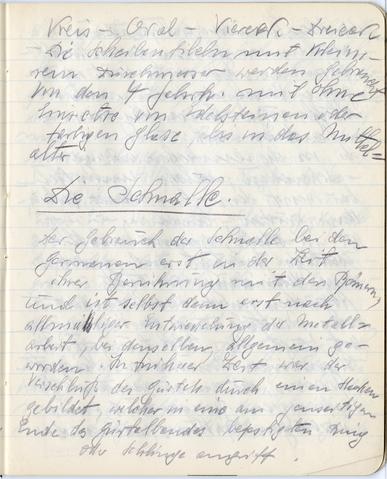 Kreis – Oval – Viereck – Dreieck
– Die Scheibenfibeln mit kleine-
rem Durchmesser werden gebraucht
von dem 4 Jahrh. mit & ohne
von Edelsteinen oder
farbigen Glase, bis in das Mittel=
alter.
Die Schnalle.
Der Gebrauch der Schnalle bei den
Germanen erst in der Zeit
ihrer Berührung mit den Römern,
und ist selbst dann erst nach
allmähliger Entwickelung der Metall=
arbeit, bei denselben, allgemein ge=
worden. In früherer Zeit war der
Verschluss des Gürtels durch einen Haken
gebildet, welcher in eine am jenseitigen
Ende des Gürtelbandes befestigten Ring
oder Schlinge eingriff.